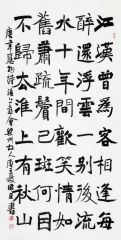 江漢曾為客相逢每
醉還浮雲一別後流
水十年間歡笑情如
舊蕭疏鬢已斑何因
不歸去淮上有秋山
唐韋應物詩淮上喜會梁州故人